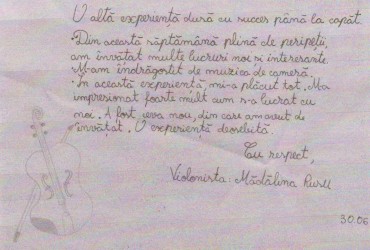 O altă experiență dură cu succes până la capăt.
·Din această săptămână plină de peripeții,
am învățat multe lucruri noi și interesante.
M-am îndrăgostit de muzica de cameră.
·În această experiență, mi-a plăcut tot. M-a
impresionat foarte mult cum s-a lucrat cu
noi. A fost ceva nou, din care am avut de
învățat. O experiență deosebită.
Cu respect,
Violonista: Mădălina Rusu
30.06